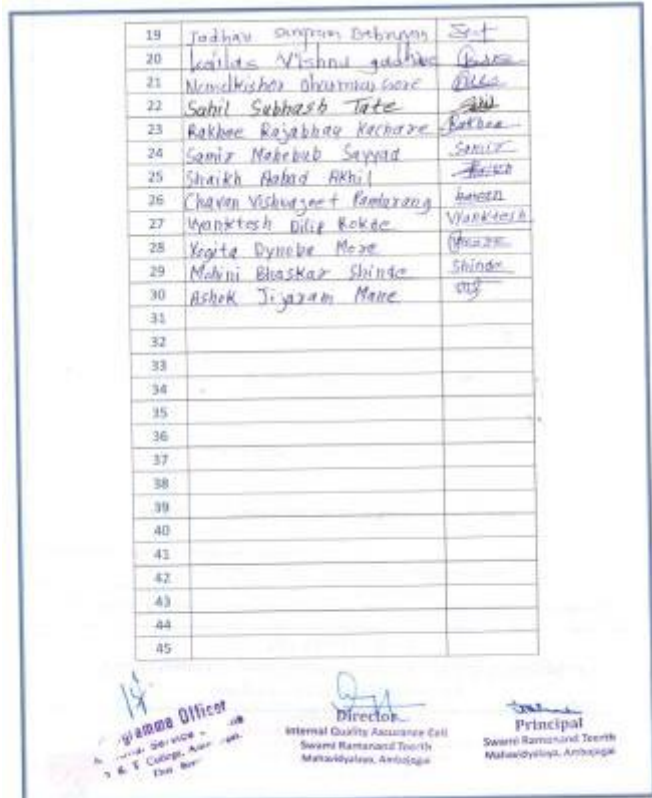 19 Jadhav Sangram
20 Kailas Vishnu
21 Nandkishor Dharmraj Gore
22 Sahil Subhash Tate
23 Rakhee Rajabhau Kachare Rakhee
24 Samir Mahebub Sayyad Samir
25 Shaikh Aabad Akhil
26 Chavan Vishvajeet Pandurang
27 Vyanktesh Dilip Kokde Vyanktesh
28 Yogita Dynoba More
29 Mohini Bhaskar Shinde Shinde
30 Ashok Jijaram Mane
31
32
33
34
35
36
37
38
39
40
41
42
43
44
45
Programme Officer
Director
Internal Quality Assurance Cell
Swami Ramanand Teerth
Mahavidyalaya, Ambajogai
Principal
Swami Ramanand Teerth
Mahavidyalaya, Ambajogai